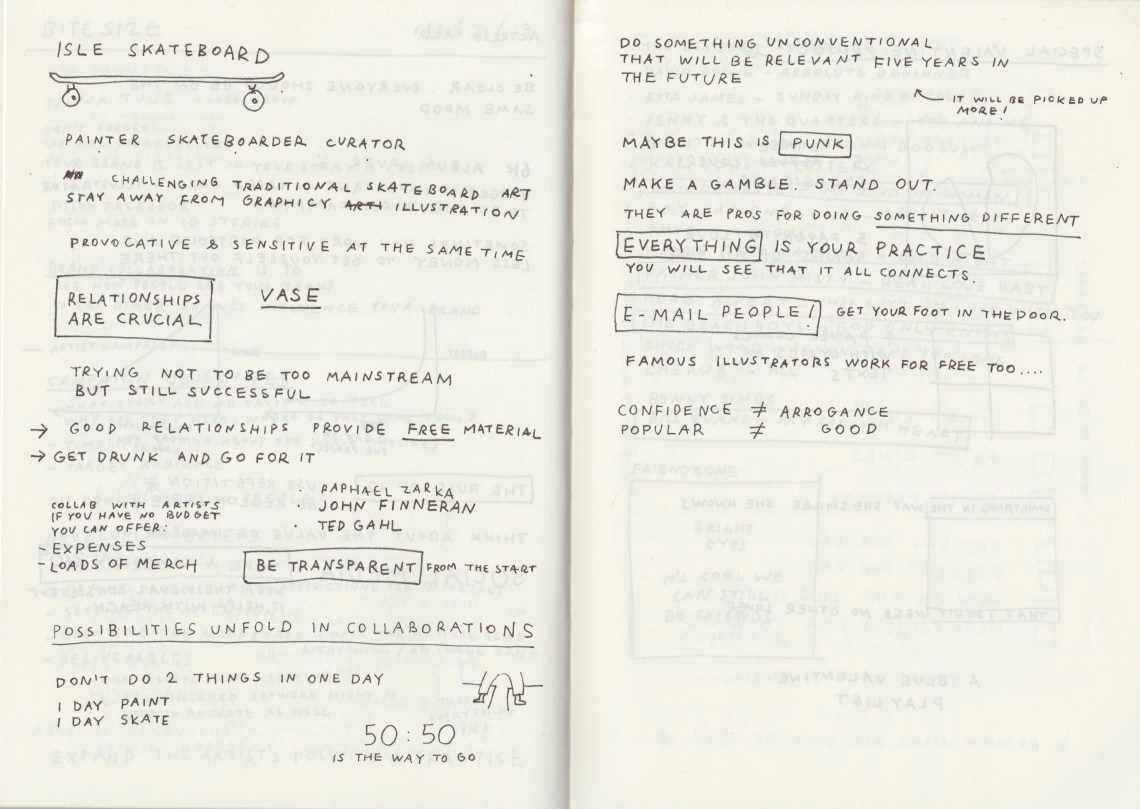 ISLE SKATEBOARD
PAINTER SKATEBOARDER CURATOR
CHALLENGING TRADITIONAL SKATEBOARD ART
STAY AWAY FROM GRAPHICY ART ILLUSTRATION
PROVOCATIVE & SENSITIVE AT THE SAME TIME
RELATIONSHIPS
ARE CRUCIAL
VASE
TRYING NOT TO BE TOO MAINSTREAM
BUT STILL SUCCESSFUL
→ GOOD RELATIONSHIPS PROVIDE FREE MATERIAL
→ GET DRUNK AND GO FOR IT
COLLAB WITH ARTISTS
IF YOU HAVE NO BUDGET
YOU CAN OFFER:
- EXPENSES
- LOADS OF MERCH
· RAPHAEL ZARKA
· JOHN FINNERAN
· TED GAHL
BE TRANSPARENT FROM THE START
POSSIBILITIES UNFOLD IN COLLABORATIONS
DON'T DO 2 THINGS IN ONE DAY
1 DAY PAINT
1 DAY SKATE
50:50
IS THE WAY TO GO
DO SOMETHING UNCONVENTIONAL
THAT WILL BE RELEVANT FIVE YEARS IN
THE FUTURE
IT WILL BE PICKED UP
MORE!
MAYBE THIS IS PUNK
MAKE A GAMBLE. STAND OUT.
THEY ARE PROS FOR DOING SOMETHING DIFFERENT
EVERYTHING IS YOUR PRACTICE
YOU WILL SEE THAT IT ALL CONNECTS
E-MAIL PEOPLE! GET YOUR FOOT IN THE DOOR.
FAMOUS ILLUSTRATORS WORK FOR FREE TOO....
CONFIDENCE ≠ ARROGANCE
POPULAR ≠ GOOD